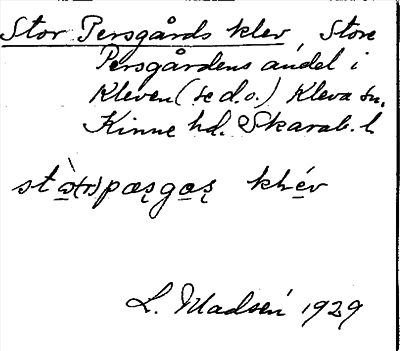 Stor Persgårds klev, Store
Persgårdens andel i
Kleven (se d.o.) Kleva sn.
Kinne hd. Skarab. l
L. Madsén 1929